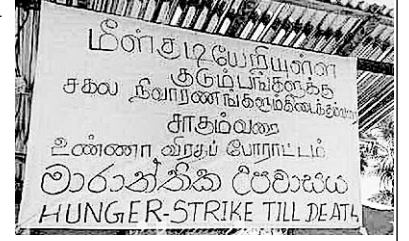 மீள்குடியேறியுள்ள
குடும்பங்களுக்கு
சகல நிவாரணங்களும்
சாகும்வரை
உண்ணா விரதப் போராட்டம்
මාරාන්තික උපවාසය
HUNGER-STRIKE TILL DEATH